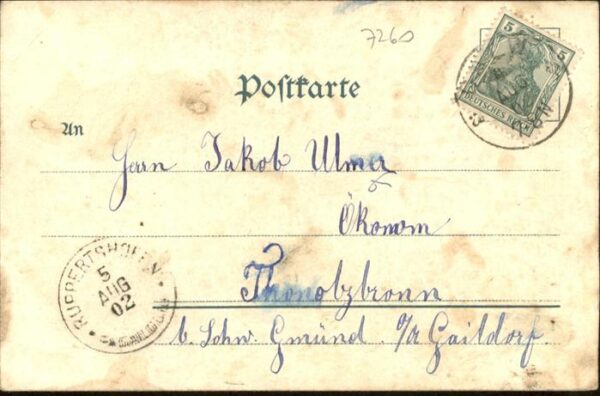 7260
5 5
DEUTSCHES REICH
Postkarte
An
Herrn Jakob Ulmer
Ökonom
Thonolzbronn
b. Schw. Gmünd. O/A Gaildorf.
RUPPERTSHOFEN
5
AUG
02